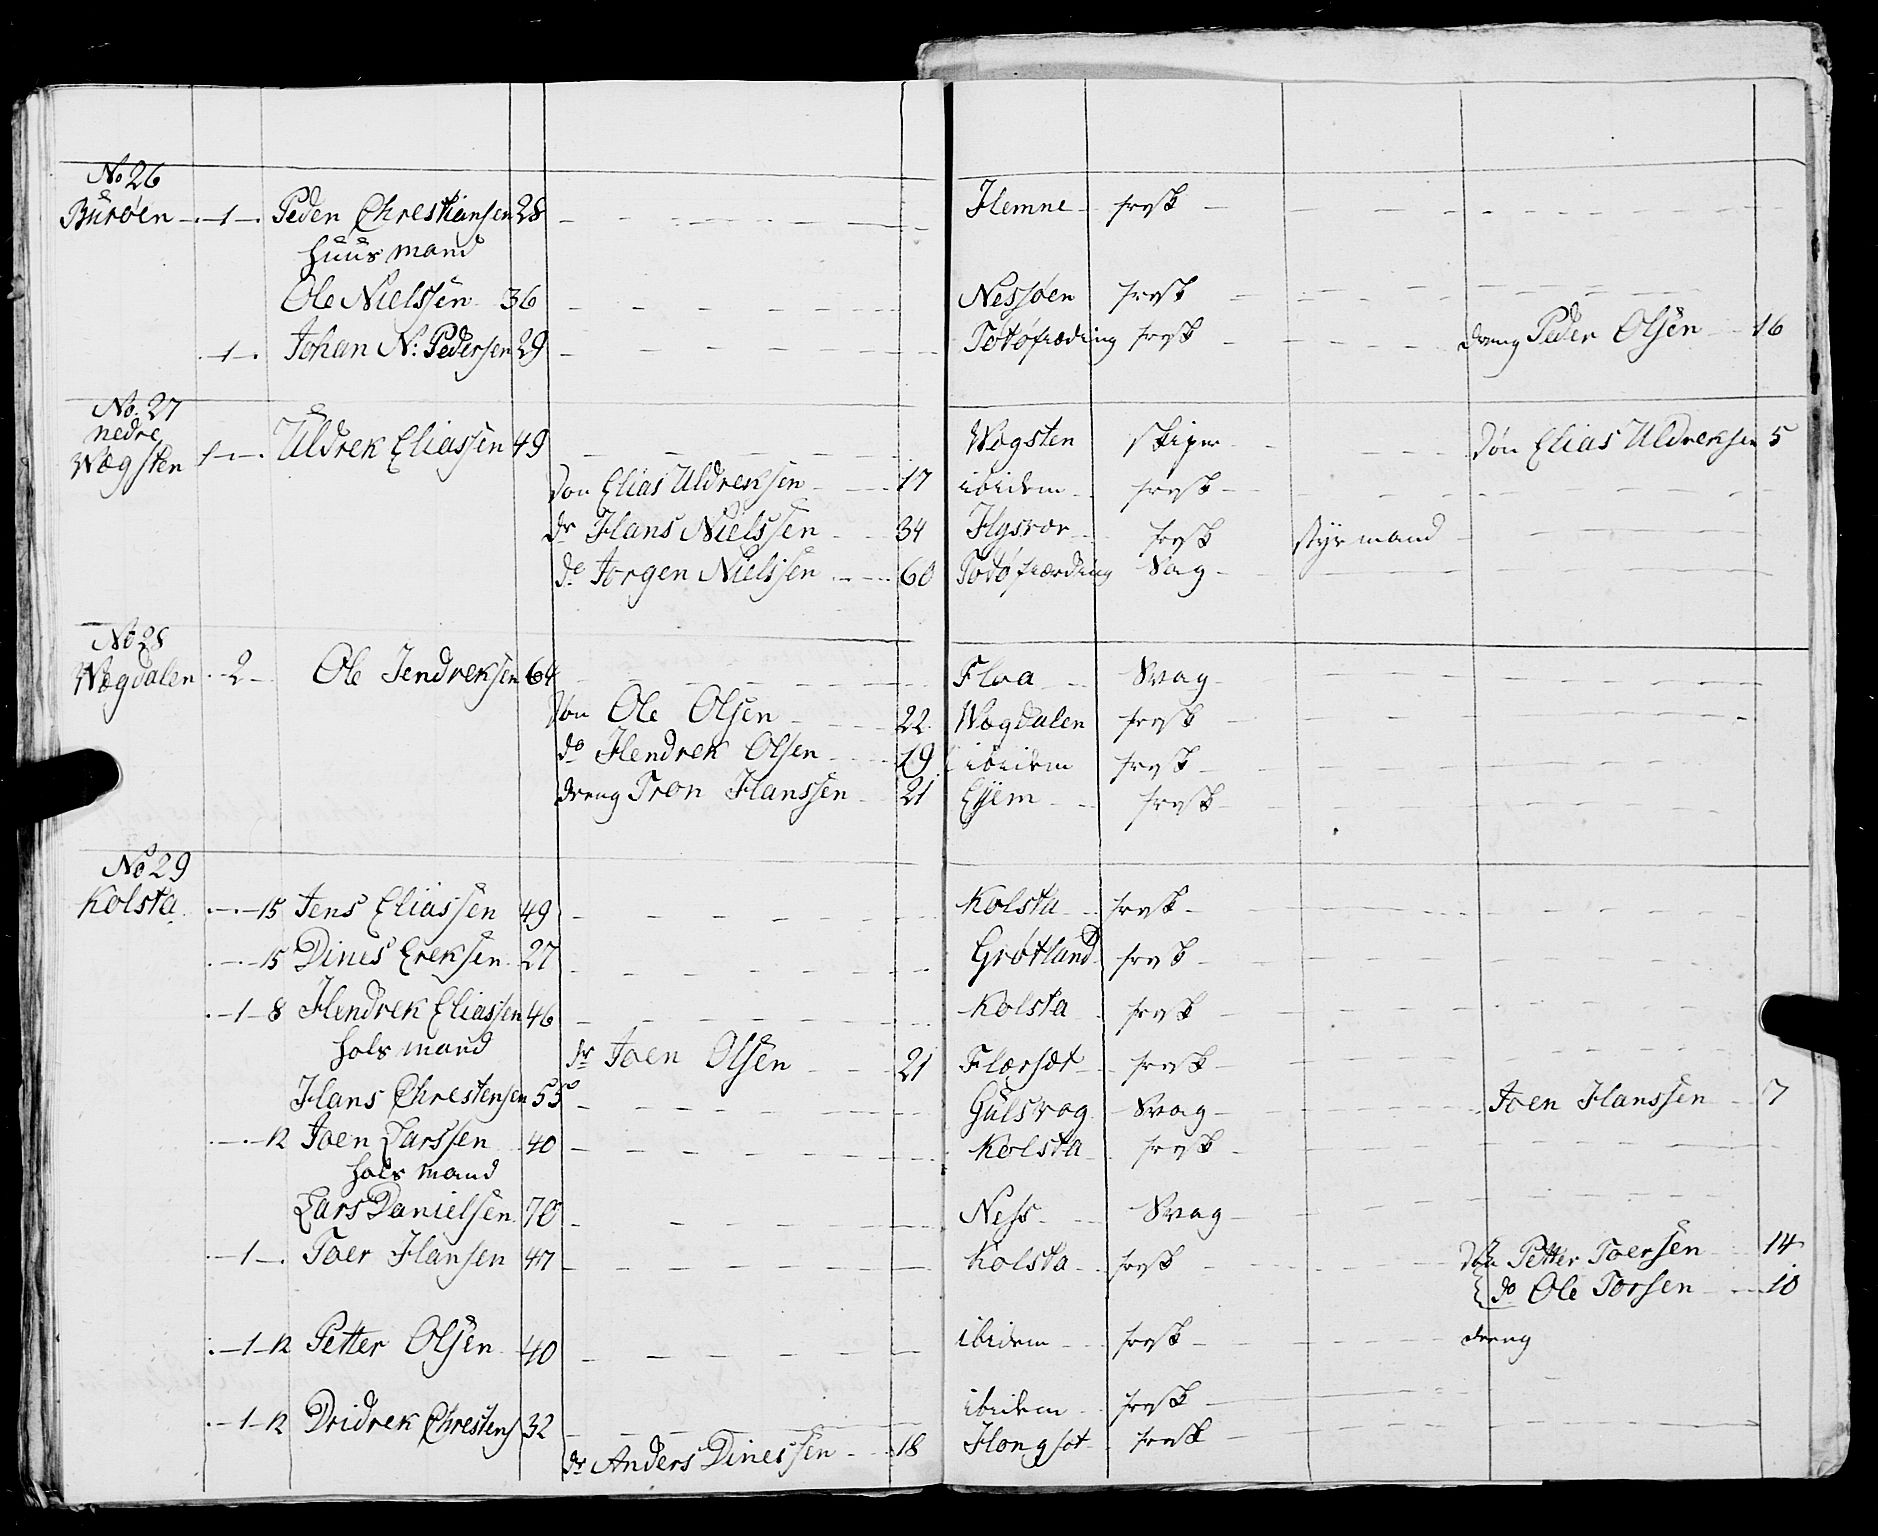 No 26
Burøen - 1 - Peder Chrestiansen 28 Hemne frisk
huus mand
Ole Nielssen 36 Nessøen frisk
- 1 - Johan N: Pedersen 29 frisk dreng Peder Olsen 16
No. 27
nedre
Wægsten 1 - Uldrek Eliassen 49 Wegsten skiper Søn Elias Uldreksen 5
Søn Elias Uldreksen 17 ibidem frisk
dr Hans Nielssen 34 frisk styrmand
do Jorgen Nielssen 60 Svag
No 28
Wægdalen - 2 - Ole Jendreksen 64 Floa Svag
Søn Ole Olsen 22 Wægdalen frisk
do Hendrek Olsen 19 ibidem frisk
dreng Tron Hanssen 21 frisk
No 29
Kolsta - 15 Jens Eliassen 49 Kolsta frisk
- 15 Dines Ereksen 27 Grøtland frisk
- 1 - 8 Hendrek Eliassen 46 Kolsta frisk
hols mand
dr Joen Olsen 21 frisk
Hans Chrestensen 55 Gulsvog Svag Joen Hanssen 7
- 12 Joen Larssen 40 Kolsta frisk
hols mand
Lars Danielsen 70 Ness Svag
- 1 - Toer Hansen 47 Kolsta frisk Søn Petter Toersen 14
do Ole Torsen 10
- 1 - 12 Petter Olsen 40 ibidem frisk dreng
- 1 - 12 Dridrek Chrestens 32 ibidem frisk
dr Anders Dinessen 18 frisk